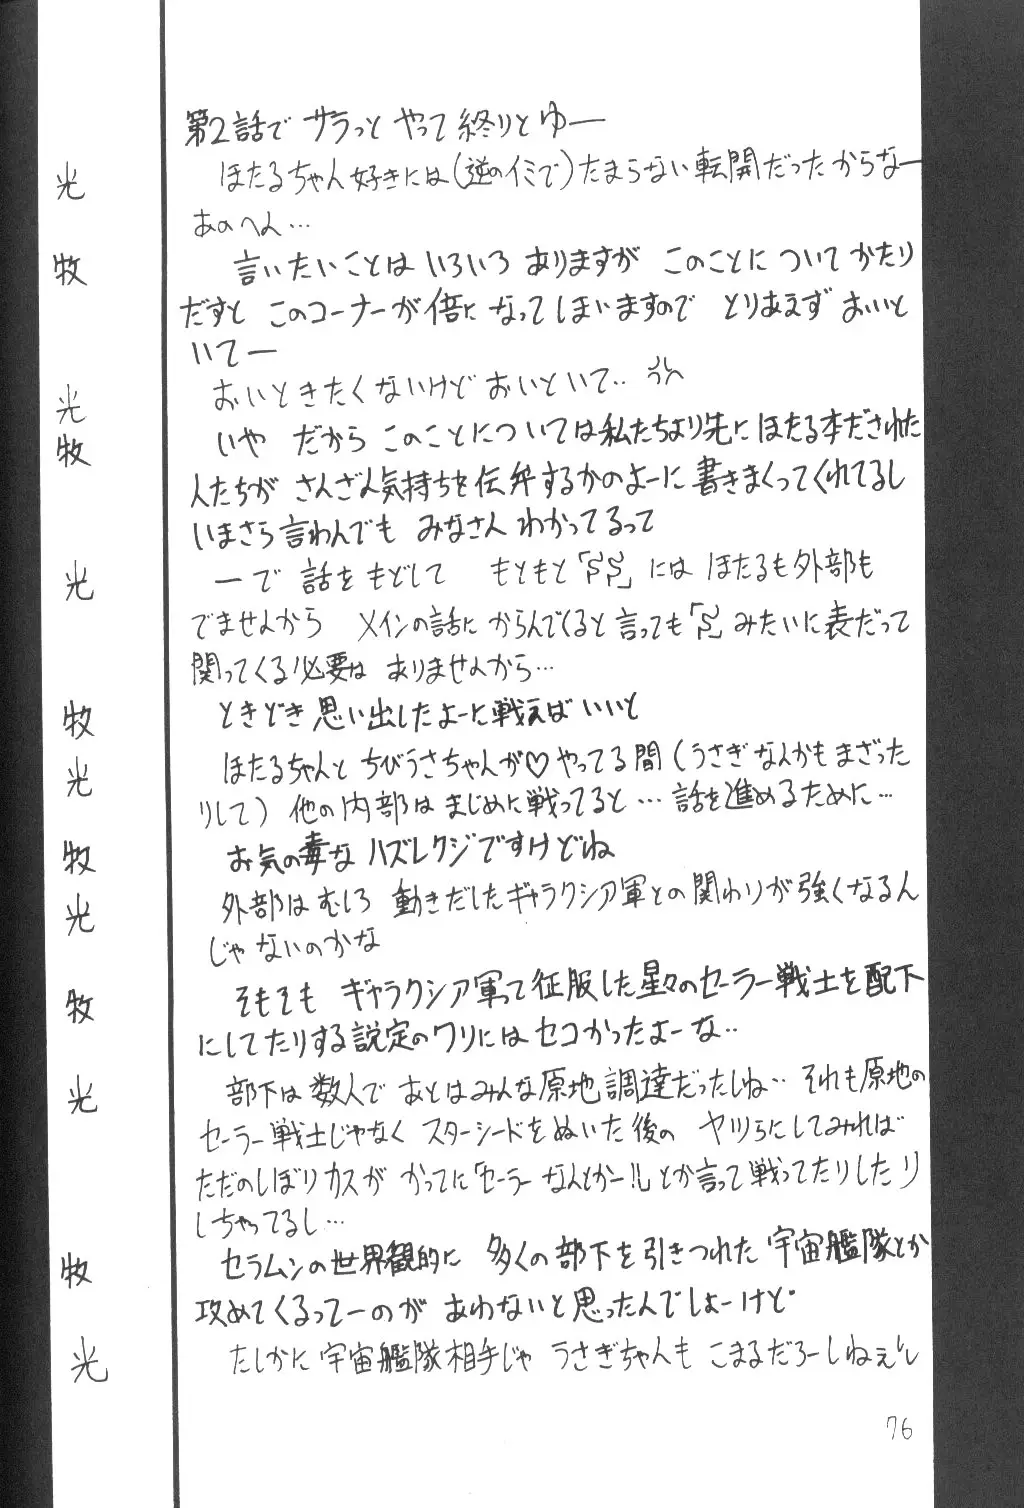 第2話で サラっと やって 終りとゆー
光 ほたるちゃん好きには(逆のイミで)たまらない転開だったからなー
あのへん…
牧 言いたいことは いろいろ ありますが このことに ついて かたり
だすと このコーナーが倍に なってしまいますので とりあえず おいと
いてー
光 おいときたくないけど おいといて‥ うん
牧 いや だから このことについては私たちより先に ほたる本だされた
人たちが さんざん気持ちを伝弁するかのよーに 書きまくってくれてるし
いまさら言わんでも みなさん わかってるって
光 ーで 話をもどして もともと「SS」には ほたるも外部も
でませんから メインの話に からんでくると言っても「S」みたいに表だって
関ってくる必要は ありませんから…
牧 ときどき 思い出したよーに戦えば いいと
光 ほたるちゃんと ちびうさちゃんが♡やってる間(うさぎなんかも まざった
りして) 他の内部は まじめに戦ってると…話を進めるために…
牧 お気の毒な ハズレクジですけどね
光 外部はむしろ 動きだしたギャラクシア軍との関わりが強くなるん
じゃないのかな
牧 そもそも ギャラクシア軍って征服した星々のセーラー戦士を配下
にしてたりする説定のワリには セコかったよーな‥
光 部下は数人で あとはみんな原地調達だったしね‥ それも原地の
セーラー戦士じゃなく スターシードをぬいた後の ヤツらにしてみれば
ただのしぼりカスが かってに「セーラーなんとかー!!」とか言って戦ってたりしたり
しちゃってるし…
牧 セラムンの世界観的に 多くの部下を引きつれた宇宙艦隊とか
攻めてくるってーのが あわないと思ったんでしょーけど
光 たしかに宇宙艦隊相手じゃ うさぎちゃんも こまるだろーしねぇ
76